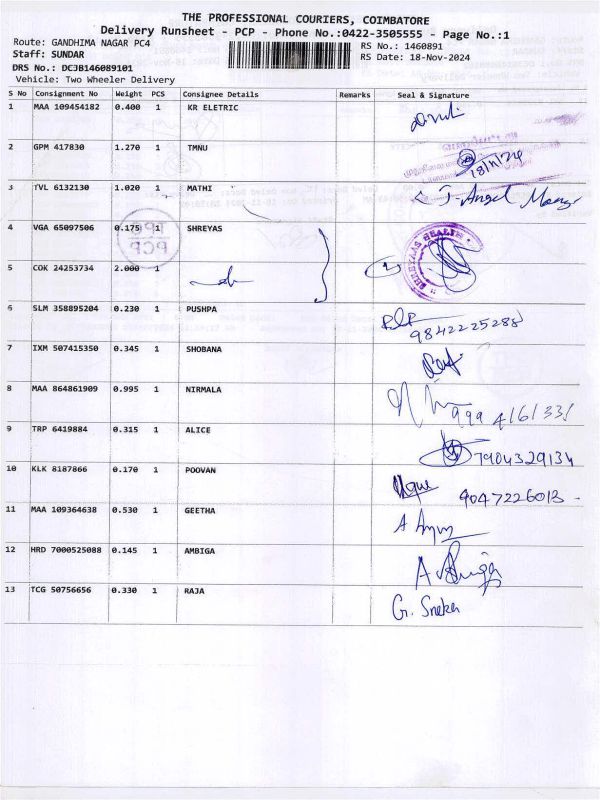 THE PROFESSIONAL COURIERS, COIMBATORE
Delivery Runsheet - PCP - Phone No.:0422-3505555 - Page No.:1
Route: GANDHIMA NAGAR PC4 RS No.: 1460891
Staff: SUNDAR RS Date: 18-Nov-2024
DRS No.: DCJB146089101
Vehicle: Two Wheeler Delivery
S No Consignment No Weight PCS Consignee Details Remarks Seal & Signature
1 MAA 109454182 0.400 1 KR ELETRIC
2 GPM 417830 1.270 1 TMNU 18/11/24
3 TVL 6132130 1.020 1 MATHI J-Angel
4 VGA 65097506 0.175 1 SHREYAS
PCP
5 COK 24253734 2.000 1
6 SLM 358895204 0.230 1 PUSHPA 9842225288
7 IXM 507415350 0.345 1 SHOBANA
8 MAA 864861909 0.995 1 NIRMALA
9 TRP 6419884 0.315 1 ALICE 7904329134
10 KLK 8187866 0.170 1 POOVAN 9047226013
11 MAA 109364638 0.530 1 GEETHA
12 HRD 7000525088 0.145 1 AMBIGA
13 TCG 50756656 0.330 1 RAJA G. Sneka